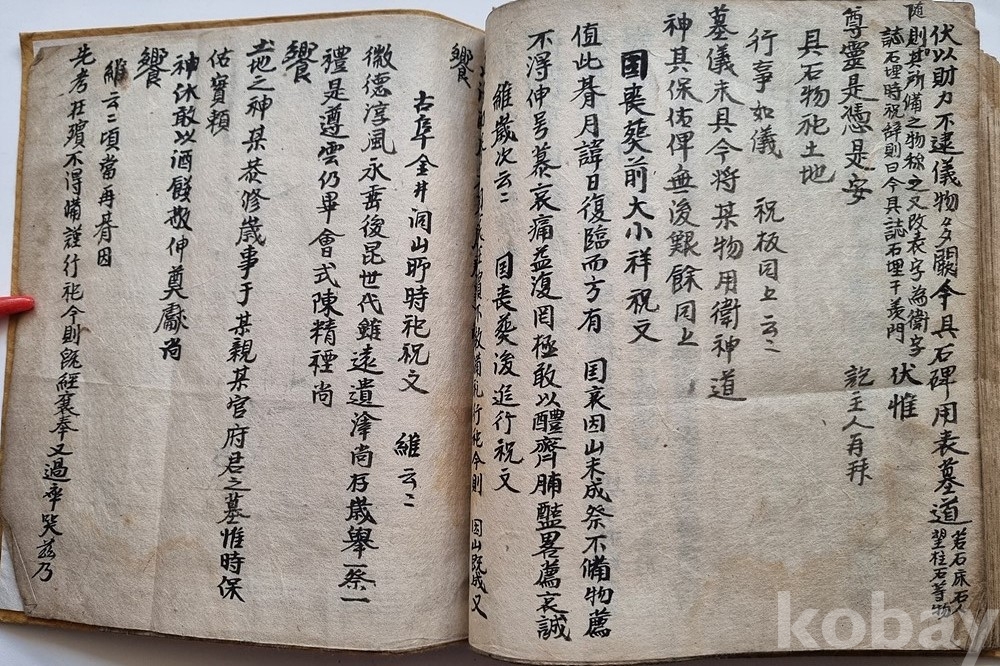 伏以財力不逮儀物多闕今具石碑用表墓道
若石床石人
望柱石等物
随則其所備之物稱之又改表字為衛字
誌石埋時祝辭則曰今具誌石埋于羨門
伏惟
尊靈是憑是安 訖主人再拜
具石物祀土地
行事如儀 祝板同上云〻
墓儀未具今將某物用衛神道
神其保佑俾無後艱餘同上
国丧葬前大小祥祝文
值此朞月諱日復臨而方有 国哀因山未成祭不備物薦
不得伸号慕哀痛益復罔極敢以醴齊脯醢畧薦哀誠
維歲次云〻 国丧葬後追行祝文
不敢備礼行祀今則 因山既成又
饗
古阜金井洞山所時祀祝文 維云〻
徽德淳風永垂後昆世代雖遠遺澤尚存歲舉一祭一
禮是遵雲仍畢會式陳精禋尚
饗
土地之神某恭修歲事于某親某官府君之墓惟時保
佑實賴
神休敢以酒饌敬伸奠獻尚
饗
維云〻頃當再朞因
先考在殯不得備謹行祀今則既經襄奉又過卒哭玆乃
kobay